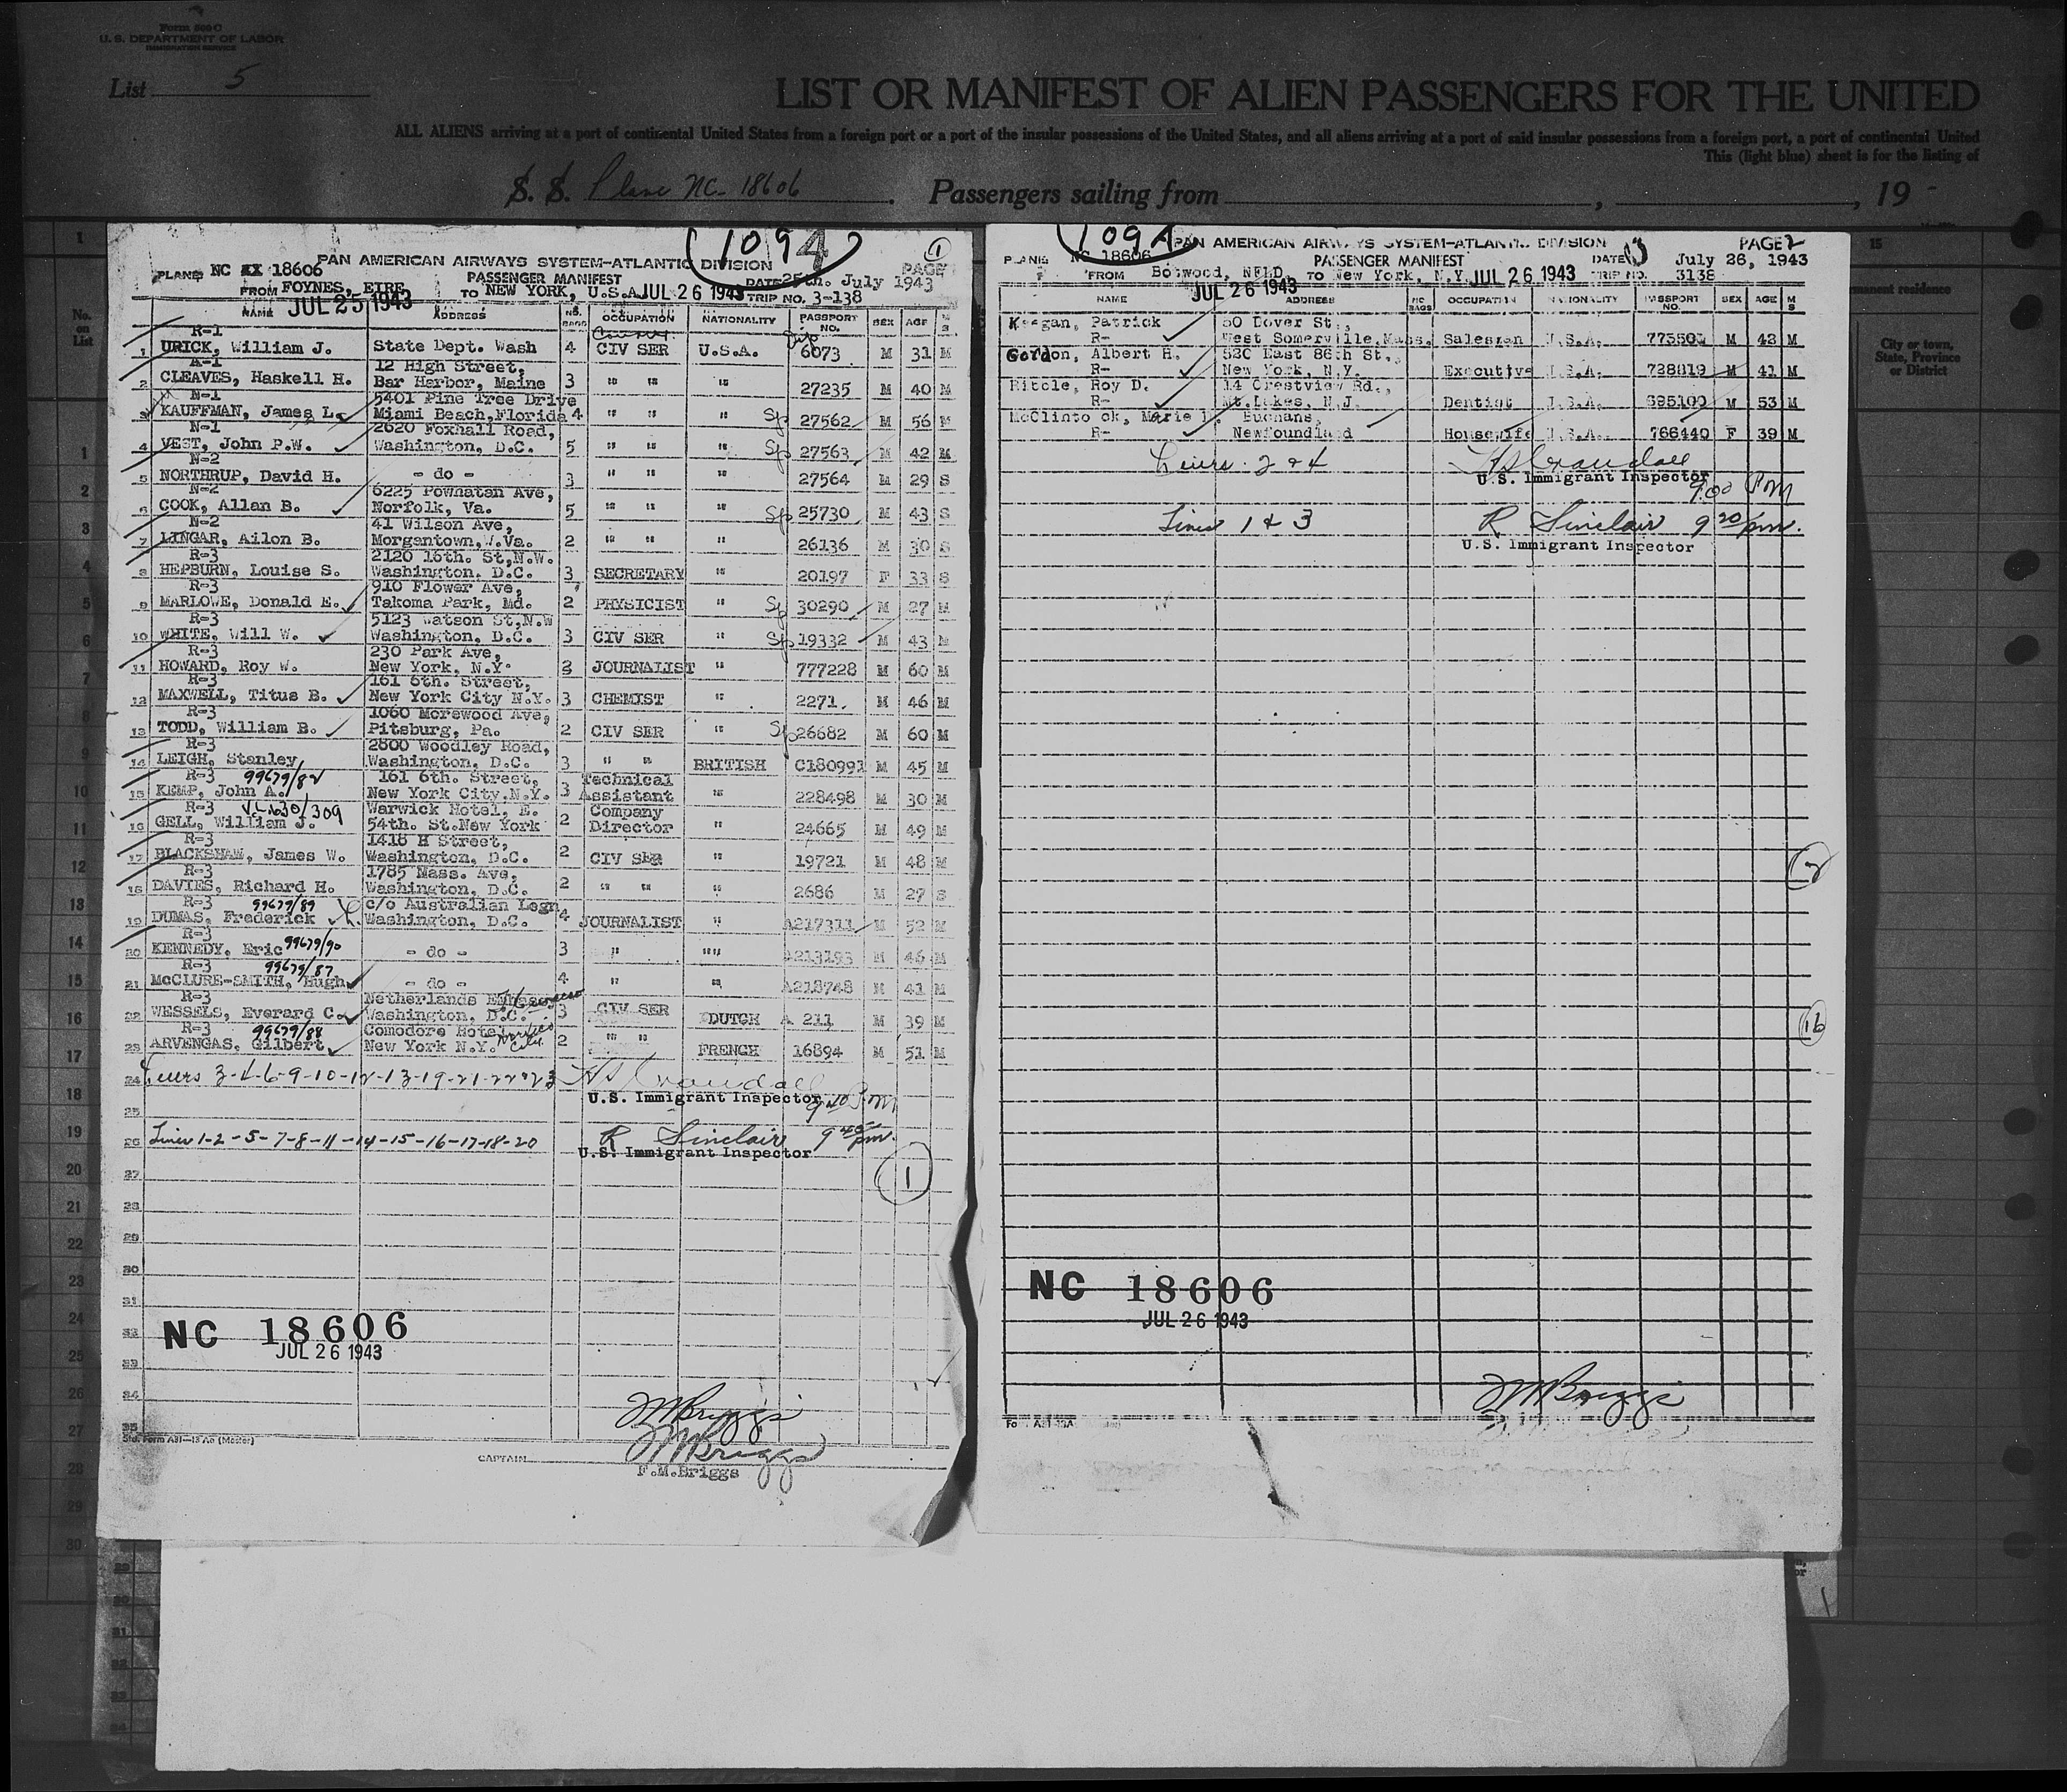 Form 500 C
U. S. DEPARTMENT OF LABOR
IMMIGRATION SERVICE
List 5
LIST OR MANIFEST OF ALIEN PASSENGERS FOR THE UNITED
ALL ALIENS arriving at a port of continental United States from a foreign port or a port of the insular possessions of the United States, and all aliens arriving at a port of said insular possessions from a foreign port, a port of continental United
This (light blue) sheet is for the listing of
S. S. Plane NC-18606. Passengers sailing from , , 19
1094 1
PAN AMERICAN AIRWAYS SYSTEM-ATLANTIC DIVISION PAGE
PLANE NC 18606 PASSENGER MANIFEST DATE 25th. July 1943
FROM FOYNES, EIRE TO NEW YORK, U.S.A JUL 26 1943 TRIP NO. 3-138
JUL 25 1943
NAME ADDRESS NO. BAGS OCCUPATION NATIONALITY PASSPORT NO. SEX AGE M S
R-1
1 URICK, William J. State Dept. Wash 4 CIV SER U.S.A. 6073 M 31 M
A-1 12 High Street,
2 CLEAVES, Haskell H. Bar Harbor, Maine 3 " " " 27235 M 40 M
N-1 5401 Pine Tree Drive
3 KAUFFMAN, James L. Miami Beach,Florida 4 " " " Sp 27562 M 56 M
N-1 2620 Foxhall Road,
4 VEST, John P.W. Washington, D.C. 5 " " " Sp 27563 M 42 M
N-2
5 NORTHRUP, David H. - do - 3 " " " 27564 M 29 S
N-2 6225 Powhatan Ave,
6 COOK, Allan B. Norfolk, Va. 5 " " " Sp 25730 M 43 S
N-2 41 Wilson Ave,
7 LINGAR, Ailon B. Morgantown,W.Va. 2 " " " 26136 M 30 S
R-3 2120 16th. St,N.W.
8 HEPBURN, Louise S. Washington, D.C. 3 SECRETARY " 20197 F 33 S
R-3 910 Flower Ave,
9 MARLOWE, Donald E. Takoma Park, Md. 2 PHYSICIST " Sp 30290 M 27 M
R-3 5123 Watson St,N.W
10 WHITE, Will W. Washington, D.C. 3 CIV SER " Sp 19332 M 43 M
R-3 230 Park Ave,
11 HOWARD, Roy W. New York, N.Y. 2 JOURNALIST " 777228 M 60 M
R-3 161 6th. Street,
12 MAXWELL, Titus B. New York City N.Y. 3 CHEMIST " 2271. M 46 M
R-3 1060 Morewood Ave,
13 TODD, William B. Pitsburg, Pa. 2 CIV SER " Sp 26682 M 60 M
R-3 2800 Woodley Road,
14 LEIGH, Stanley Washington, D.C. 3 " " BRITISH C180991 M 45 M
R-3 99679/82 161 6th. Street, Technical
15 KEMP, John A. New York City,N.Y. 3 Assistant " 228498 M 30 M
R-3 Warwick Hotel, E. Company
16 GELL, William J. 54th. St.New York 2 Director " 24665 M 49 M
R-3 1418 H Street,
17 BLACKSHAW, James W. Washington, D.C. 2 CIV SER " 19721 M 48 M
R-3 1785 Mass. Ave,
18 DAVIES, Richard H. Washington, D.C. 2 " " " 2686 M 27 S
R-3 99679/89 c/o Australian Legn
19 DUMAS, Frederick Washington, D.C. 4 JOURNALIST " A217311 M 52 M
R-3
20 KENNEDY, Eric 99679/90 - do - 3 " " A213193 M 46 M
R-3 99679/87
21 McCLURE-SMITH, Hugh - do - 4 " " A218748 M 41 M
R-3 Netherlands
22 WESSELS, Everard C. Washington, D.C. 3 CIV SER DUTCH A 211 M 39 M
R-3 99679/88 Comodore Hotel
23 ARVENGAS, Gilbert New York N.Y. 2 " " FRENCH 16894 M 51 M
24 Lines 3-4-6-9-10-12-13-19-21-22+23 HS Crandall
U.S. Immigrant Inspector 9 40 PM
25
26 Lines 1-2-5-7-8-11-14-15-16-17-18-20 R Sinclair 9 40 pm.
U.S. Immigrant Inspector
27 1
28
29
30
31
32
NC 18606
JUL 26 1943
33
34
FMBriggs
35
Std. Form A31-13 Ao (Master)
FMBriggs
CAPTAIN
F.M.Briggs
1094
PAN AMERICAN AIRWAYS SYSTEM-ATLANTIC DIVISION PAGE 2
PLANE NC 18606 PASSENGER MANIFEST DATE July 26, 1943
FROM Botwood, NFLD. TO New York, N.Y. JUL 26 1943 TRIP NO. 3138
JUL 26 1943
NAME ADDRESS NO. BAGS OCCUPATION NATIONALITY PASSPORT NO. SEX AGE M S
Keegan, Patrick 50 Dover St.,
West Somerville,Mass. Salesman U.S.A. 775501 M 42 M
Gordon, Albert H. 520 East 86th St.,
R- New York, N.Y. Executive U.S.A. 728819 M 41 M
Rittle, Roy D. 14 Crestview Rd.,
R- Mt.Lakes, N.J. Dentist U.S.A. 695100 M 53 M
McClintock, Marie Buchans,
R- Newfoundland Housewife U.S.A. 766440 F 39 M
Lines 2 + 4 HS Crandall
U.S. Immigrant Inspector
9 00 PM
Lines 1 & 3 R Sinclair 9 20 pm.
U.S. Immigrant Inspector
2
16
NC 18606
JUL 26 1943
FMBriggs
15
City or town,
State, Province
or District
No. on List
1
2
3
4
5
6
7
8
9
10
11
12
13
14
15
16
17
18
19
20
21
22
23
24
25
26
27
28
29
30